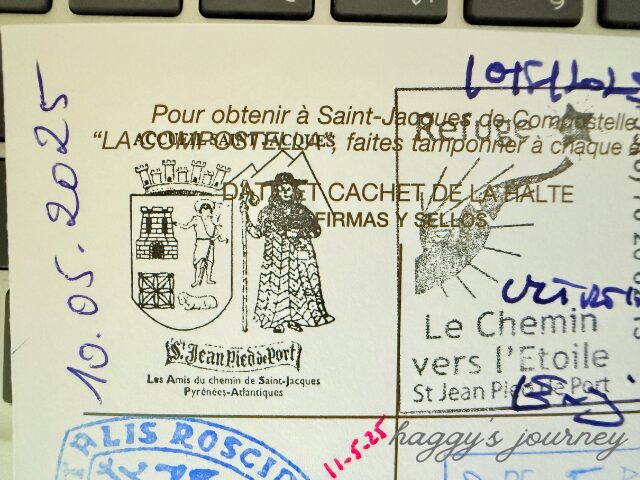 Pour obtenir à Saint-Jacques de Compostelle
"LA COMPOSTELA", faites tamponner à chaque
DATE ET CACHET DE LA HALTE
FIRMAS Y SELLOS
10.05.2025
ACCUEIL SAINT JACQUES
St Jean Pied de Port
Les Amis du chemin de Saint-Jacques
Pyrénées-Atlantiques
Refuge
Le Chemin
vers l'Etoile
St Jean Pied de Port
ALIS ROSCID
11-5-25
haggy's journey